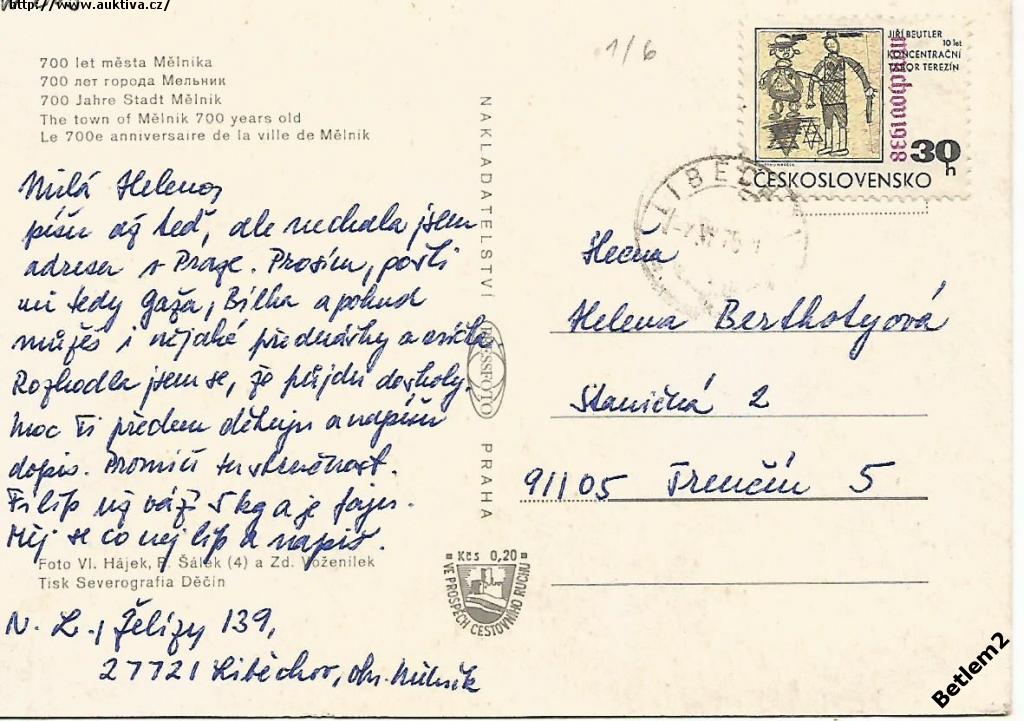 http://www.auktiva.cz/
700 let města Mělníka
700 лет города Мельник
700 Jahre Stadt Mělník
The town of Mělník 700 years old
Le 700e anniversaire de la ville de Mělník
Milá Heleno,
píšu až teď, ale nechala jsem
adresu v Praze. Prosím, pošli
mi tedy Gaža, Bílka a pokud
můžeš i nějaké přednášky a
Rozhodla jsem se, že půjdu do školy.
Moc Ti předem děkuji a napíšu
dopis. Promiň tu stručnost.
Filip už váží 5 kg a je fajn.
Měj se co nejlíp a napiš.
Foto Vl. Hájek, P. Šálek (4) a Zd. Voženílek
Tisk Severografia Děčín
N. L., Želízy 139,
27721 Liběchov, okr. Mělník
NAKLADATELSTVÍ
PRESSFOTO
PRAHA
Kčs 0,20
VE PROSPĚCH CESTOVNÍHO RUCHU
1/6
JIŘÍ BEUTLER
10 let
KONCENTRAČNÍ
TÁBOR TEREZÍN
30 h
ČESKOSLOVENSKO
LIBĚCH
Helena Berthotyová
Staničká 2
91105 Trenčín 5
Betlem2